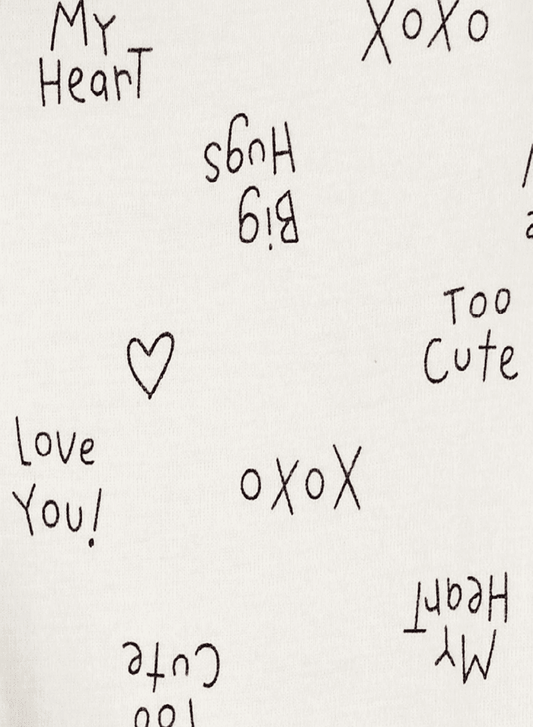 My
Heart
XoXo
Big
Hugs
Too
Cute
Love
You!
XoXo
My
Heart
Too
Cute